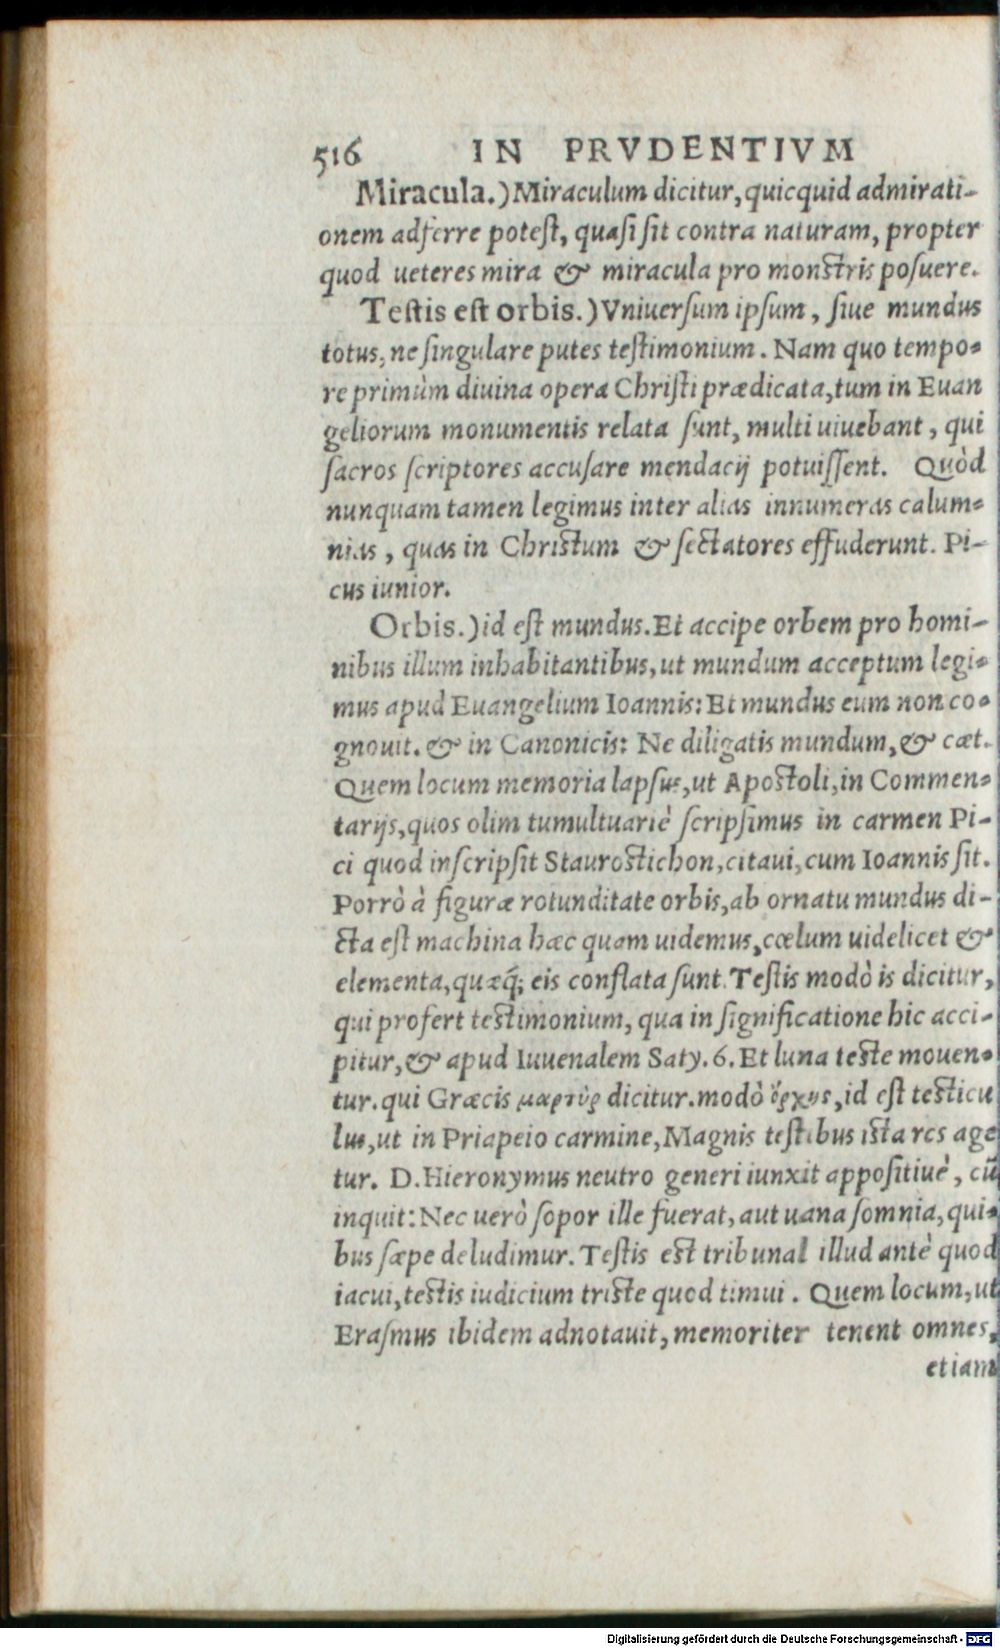 516 IN PRVDENTIVM
Miracula.) Miraculum dicitur, quicquid admirati-
onem adferre potest, quasi sit contra naturam, propter
quod ueteres mira & miracula pro monstris posuere.
Testis est orbis.) Vniuersum ipsum, siue mundus
totus, ne singulare putes testimonium. Nam quo tempo-
re primùm diuina opera Christi prædicata, tum in Euan
geliorum monumentis relata sunt, multi uiuebant, qui
sacros scriptores accusare mendacij potuissent. Quòd
nunquam tamen legimus inter alias innumeras calum-
nias, quas in Christum & sectatores effuderunt. Pi-
cus iunior.
Orbis.) id est mundus. Et accipe orbem pro homi-
nibus illum inhabitantibus, ut mundum acceptum legi-
mus apud Euangelium Ioannis: Et mundus eum non co-
gnouit. & in Canonicis: Ne diligatis mundum, & cæt.
Quem locum memoria lapsus, ut Apostoli, in Commen-
tarijs, quos olim tumultuariè scripsimus in carmen Pi-
ci quod inscripsit Staurostichon, citaui, cum Ioannis sit.
Porrò à figuræ rotunditate orbis, ab ornatu mundus di-
cta est machina hæc quam uidemus, cœlum uidelicet &
elementa, quæq́; eis conflata sunt. Testis modò is dicitur,
qui profert testimonium, qua in significatione hic acci-
pitur, & apud Iuuenalem Saty. 6. Et luna teste mouen-
tur. qui Græcis μαρτὺρ dicitur. modò ὄρχις, id est testicu
lus, ut in Priapeio carmine, Magnis testibus ista res age
tur. D. Hieronymus neutro generi iunxit appositiuè, cū
inquit: Nec uerò sopor ille fuerat, aut uana somnia, qui-
bus sæpe deludimur. Testis est tribunal illud antè quod
iacui, testis iudicium triste quod timui. Quem locum, ut
Erasmus ibidem adnotauit, memoriter tenent omnes,
etiam
Digitalisierung gefördert durch die Deutsche Forschungsgemeinschaft - DFG